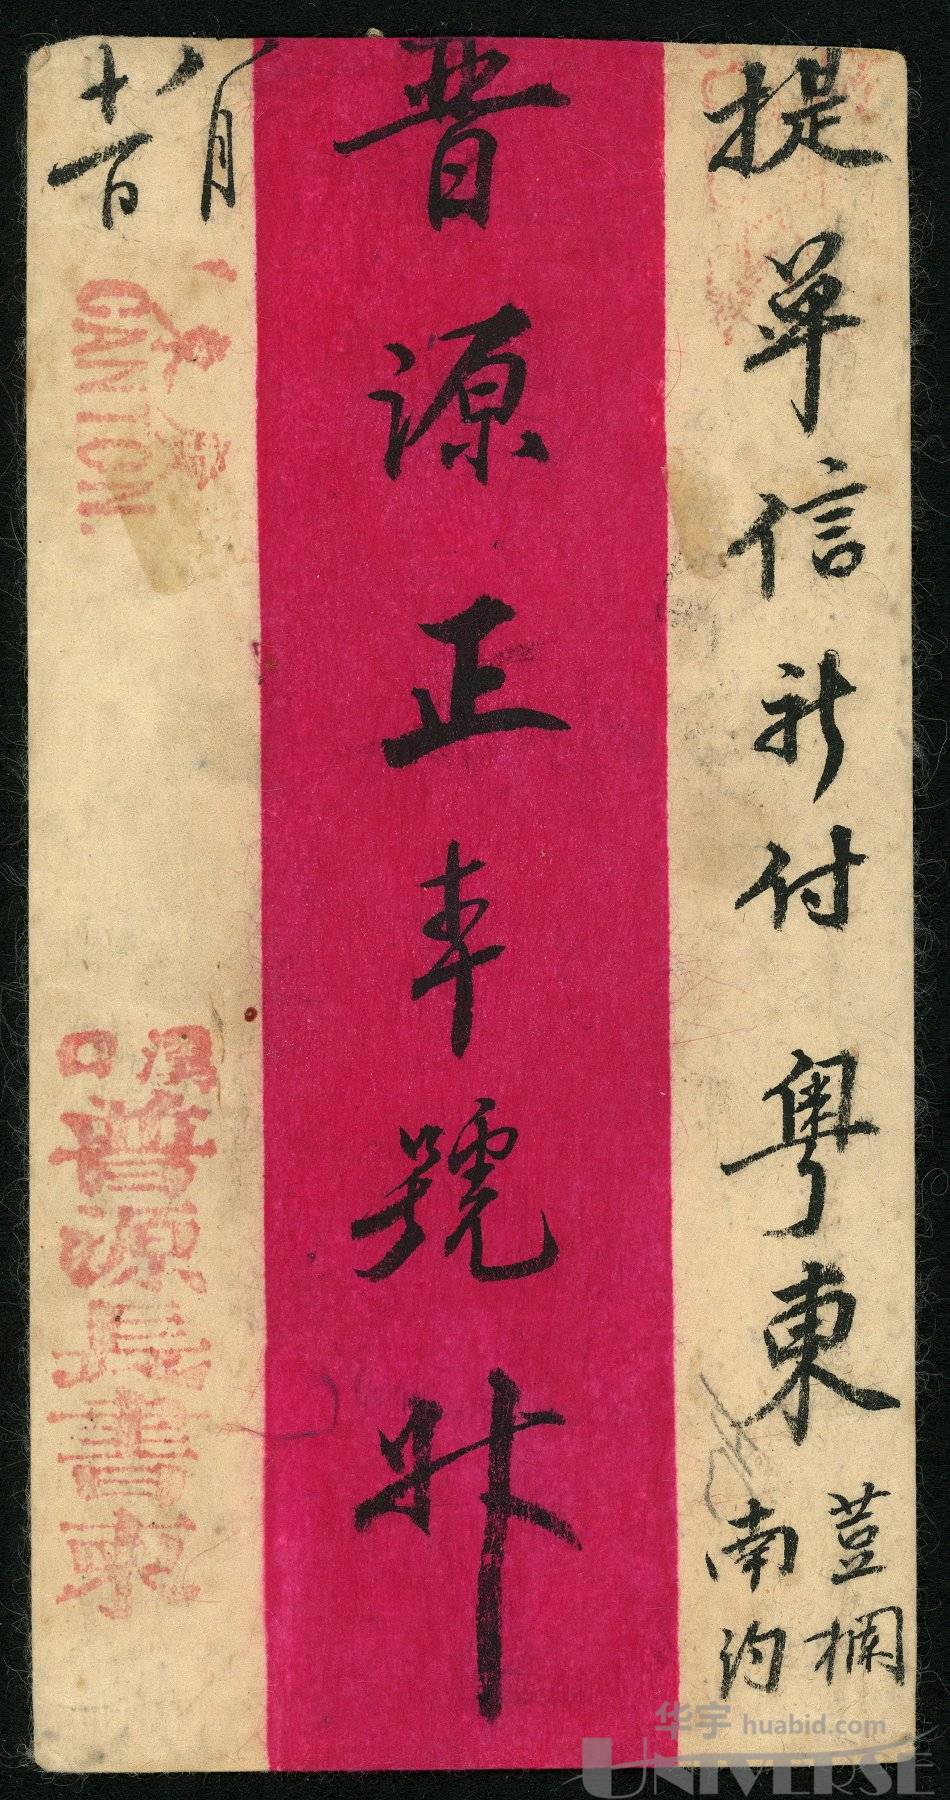 提單信祈付粵東
荳欄
南約
普源正號升
月
CANTON.
漢口
普源長書柬
华宇 huabid.com
UNIVERSE